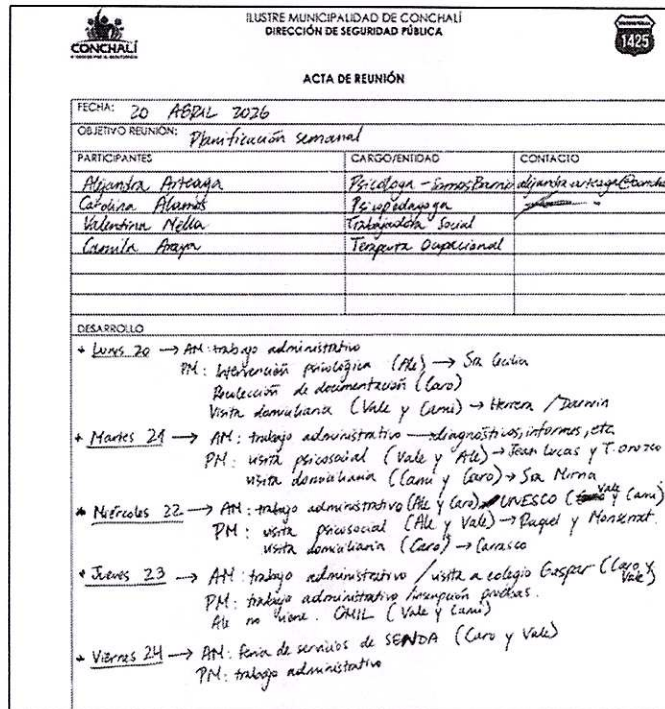 ILUSTRE MUNICIPALIDAD DE CONCHALÍ
DIRECCIÓN DE SEGURIDAD PÚBLICA
CONCHALÍ
1425
ACTA DE REUNIÓN
FECHA: 20 ABRIL 2026
OBJETIVO REUNIÓN: Planificación semanal
PARTICIPANTES CARGO/ENTIDAD CONTACTO
Alejandra Arteaga Psicóloga - Somos Barrio alejandra.arteaga@conch
Carolina Álamos Psicopedagoga
Valentina Mella Trabajadora Social
Camila Araya Terapeuta Ocupacional
DESARROLLO
* Lunes 20 → AM: trabajo administrativo
PM: Intervención psicológica (Ale) → Sra Cecilia
Recolección de documentación (Caro)
Visita domiciliaria (Vale y Cami) → Herrera / Darwin
* Martes 21 → AM: trabajo administrativo → diagnósticos, informes, etc
PM: visita psicosocial (Vale y Ale) → Jean Lucas y T. Orozco
visita domiciliaria (Cami y Caro) → Sra Mirna
* Miércoles 22 → AM: trabajo administrativo (Ale y Caro) UNESCO (Vale y Cami)
PM: visita psicosocial (Ale y Vale) → Raquel y Monserrat.
visita domiciliaria (Caro) → Carrasco
* Jueves 23 → AM: trabajo administrativo / visita a colegio Gaspar (Caro y Vale)
PM: trabajo administrativo / inscripción pruebas.
Ale no viene. OMIL (Vale y Cami)
* Viernes 24 → AM: feria de servicios de SENDA (Caro y Vale)
PM: trabajo administrativo